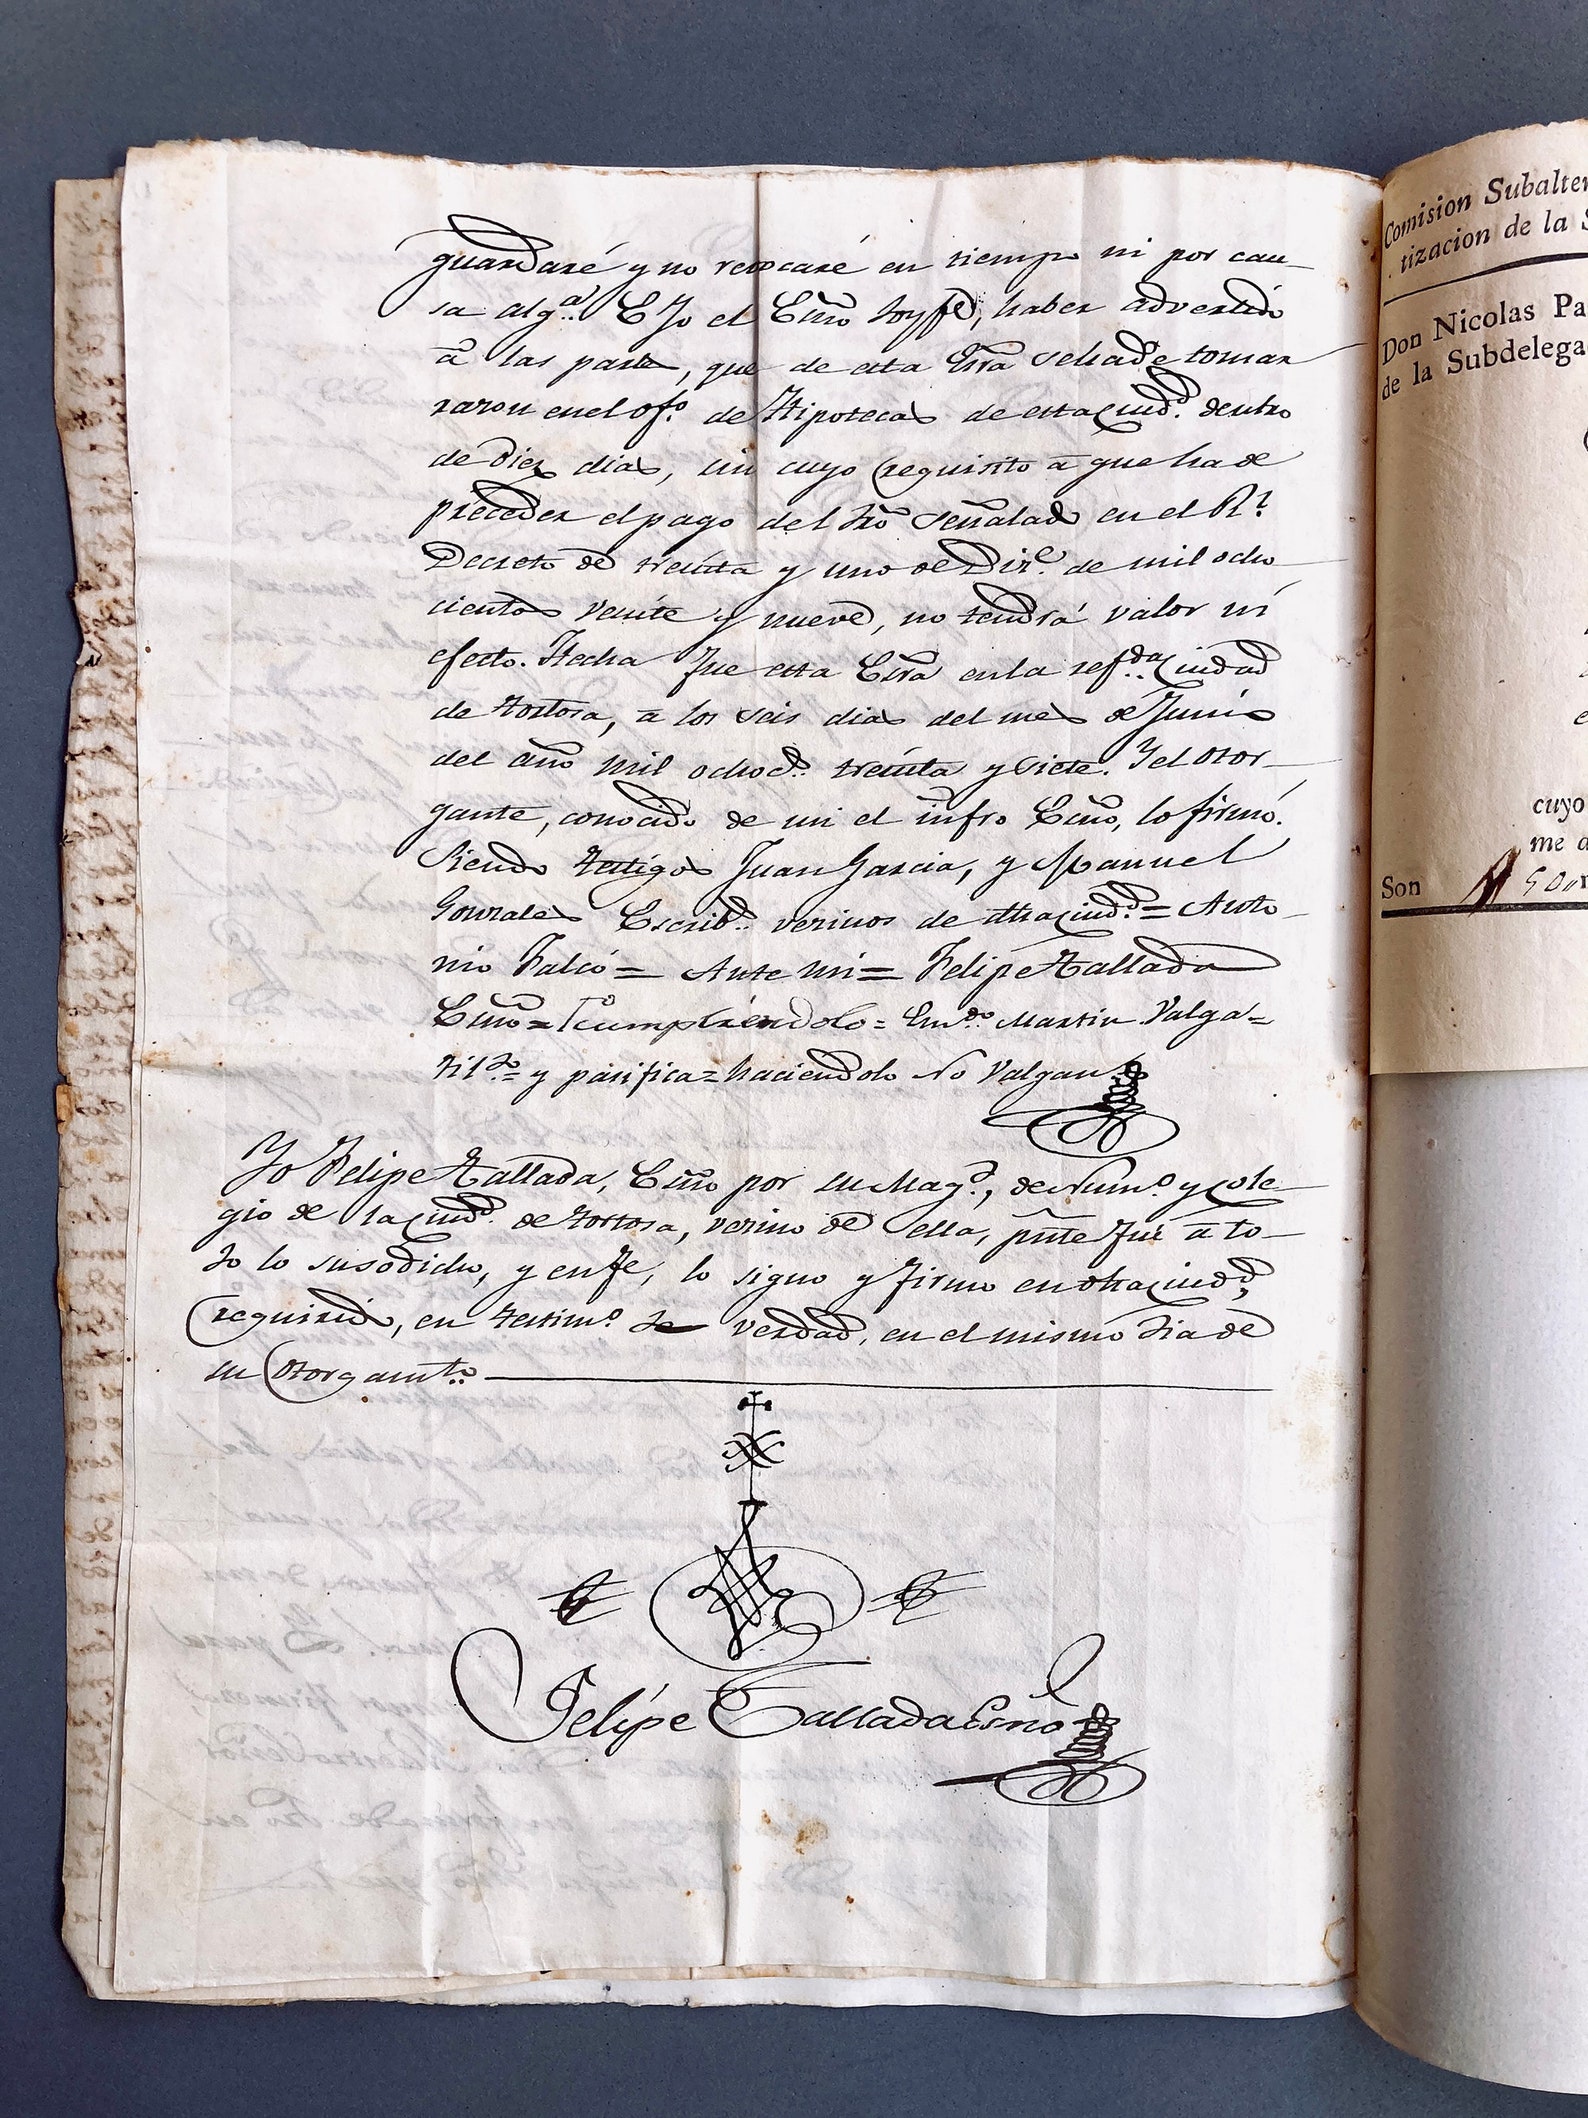 guardaré y no revocaré en tiempo ni por cau-
sa alg.ª E Yo el Esno doy fe, haber advertido
â las partes, que de esta Essra se ha de tomar
razon en el of.º de Hipotecas de esta Ciud.d dentro
de Diez dias, sin cuyo requisito â que ha de
preceder el pago del dro señalado en el R.l
Decreto de treinta y uno de Diz.e de mil ocho
cientos veinte y nueve, no tendrá valor ni
efecto. Hecha fue esta Essra en la ref.da Ciudad
de Tortosa, â los seis dias del mes de Junio
del año mil ochoc.s treinta y siete. Y el otor-
gante, conocido de mi el infro Esno, lo firmó.
Siendo Testigos Juan Garcia, y Manuel
Gonzales Escrib.s vezinos de dha Ciud.d = Anto-
nio Falcó = Ante mi = Felipe Tallada
Esno = cumpliéndolo = Em.do Martin Valga =
Til.do = y parifica = haciendolo No Valgan
Yo Felipe Tallada, Esno por su Mag.d, de Num.º y Cole-
gio de la Ciud.d de Tortosa, vezino de ella, pnte fuí â to-
do lo susodicho, y en fe, lo signo y firmo en dha Ciud.d,
requirido, en testim.º de verdad, en el mismo dia de
su otorgamt.º
Felipe Tallada Esno
Comision Subalter
tizacion de la S
Don Nicolas Pa
de la Subdelega
cuyo
me d
Son